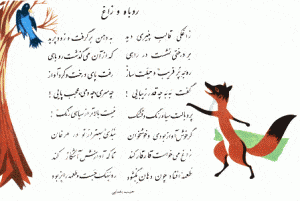 روباه و زاغ
زاغکی قالب پنیری دید به دهن برگرفت و زود پرید
بر درختی نشست در راهی که از آن می گذشت روباهی
روبه پر فریب و حیلت ساز رفت پای درخت و کرد آواز
گفت به به چقدر زیبایی چه سری چه دمی عجب پایی
پر و بالت سیاه رنگ و قشنگ نیست بالاتر از سیاهی رنگ
گر خوش آواز بودی و خوش خوان نبدی بهتر از تو در مرغان
زاغ می خواست قار قار کند تا که آوازش آشکار کند
طعمه افتاد چون دهان بگشود روبهک جست و طعمه را بربود
حبیب یغمایی